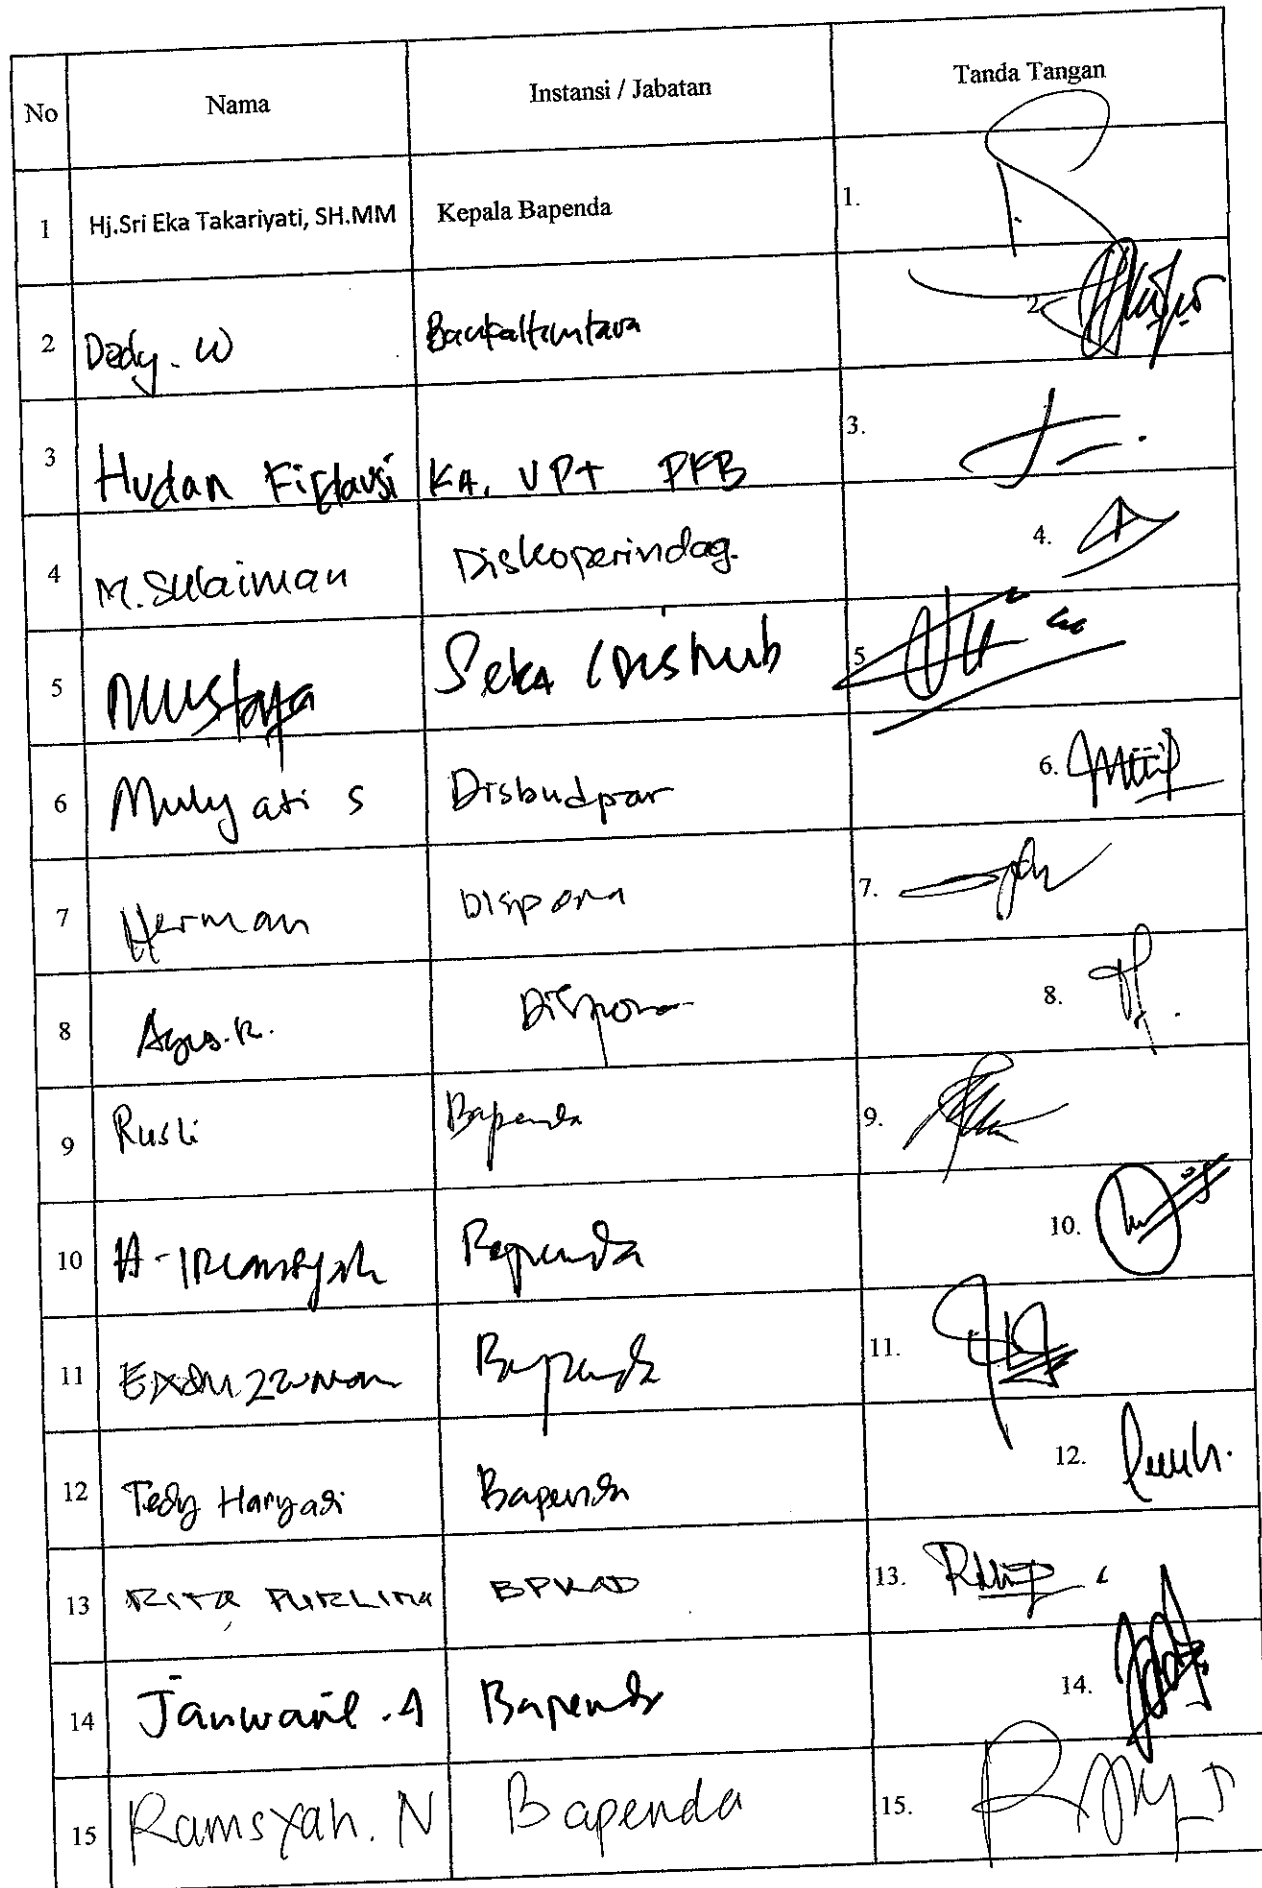 No Nama Instansi / Jabatan Tanda Tangan
1 Hj.Sri Eka Takariyati, SH.MM Kepala Bapenda 1.
2 Dedy. W Bankaltimtara 2
3 Hudan Firdausi KA. UPT PFB 3.
4 M. Sulaiman Diskoperindag. 4.
5 Mustafa Seka / Dishub 5
6 Mulyati S Disbudpar 6.
7 Herman Dispora 7.
8 Agus. R. Dispora 8.
9 Rusli Bapenda 9.
10 Bapenda 10.
11 Bapenda 11.
12 Tedy Haryadi Bapenda 12.
13 BPKAD 13.
14 Bapenda 14.
15 Ramsyah. N Bapenda 15.